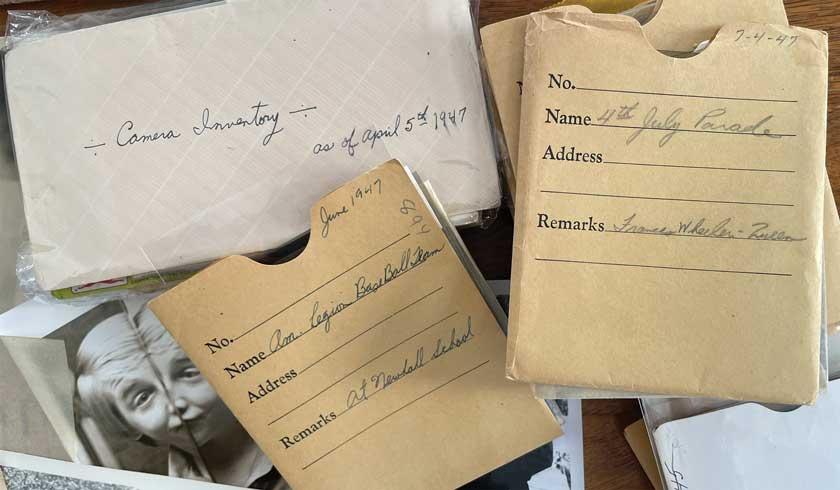 ÷ Camera Inventory ÷
as of April 5th 1947
June 1947
No.
Name Am. Legion BaseBall Team
Address
Remarks At Newhall School
7-4-47
No.
Name 4th July Parade
Address
Remarks Frances Wheeler - Queen